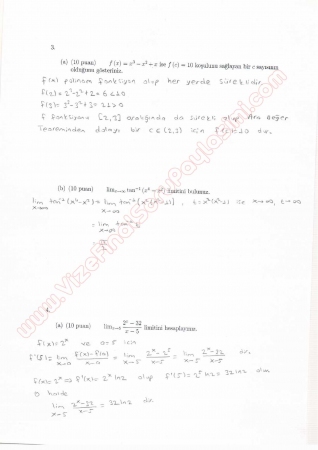 3.
(a) (10 puan) f(x) = x³ − x² + x ise f(c) = 10 koşulunu sağlayan bir c sayısının
olduğunu gösteriniz.
f(x) polinom fonksiyon olup her yerde süreklidir.
f(2) = 2³-2²+2 = 6 <10
f(3) = 3³-3²+3 = 21>0
f fonksiyonu [2,3] aralığında da sürekli olup Ara değer
Teoreminden dolayı bir c∈(2,3) için f(c)=10 dur.
(b) (10 puan) lim x→∞ tan⁻¹(x⁴ − x²) limitini bulunuz.
lim x→∞ tan⁻¹(x⁴-x²) = lim x→∞ tan⁻¹(x²(x²-1)) , t = x²(x²-1) ise x→∞, t→∞
= lim x→∞ tan⁻¹ t
π/2
4.
(a) (10 puan) lim x→5 (2ˣ − 32)/(x − 5) limitini hesaplayınız.
f(x) = 2ˣ ve a=5 için
f'(5) = lim x→a (f(x)-f(a))/(x-a) = lim x→5 (2ˣ-2⁵)/(x-5) = lim x→5 (2ˣ-32)/(x-5) dir.
f(x) = 2ˣ ⇒ f'(x) = 2ˣ ln2 olup f'(5) = 2⁵ ln2 = 32 ln2 dir.
O halde
lim x→5 (2ˣ-32)/(x-5) = 32 ln2 dir.
www.VizeFinalSoruPaylasimi.com